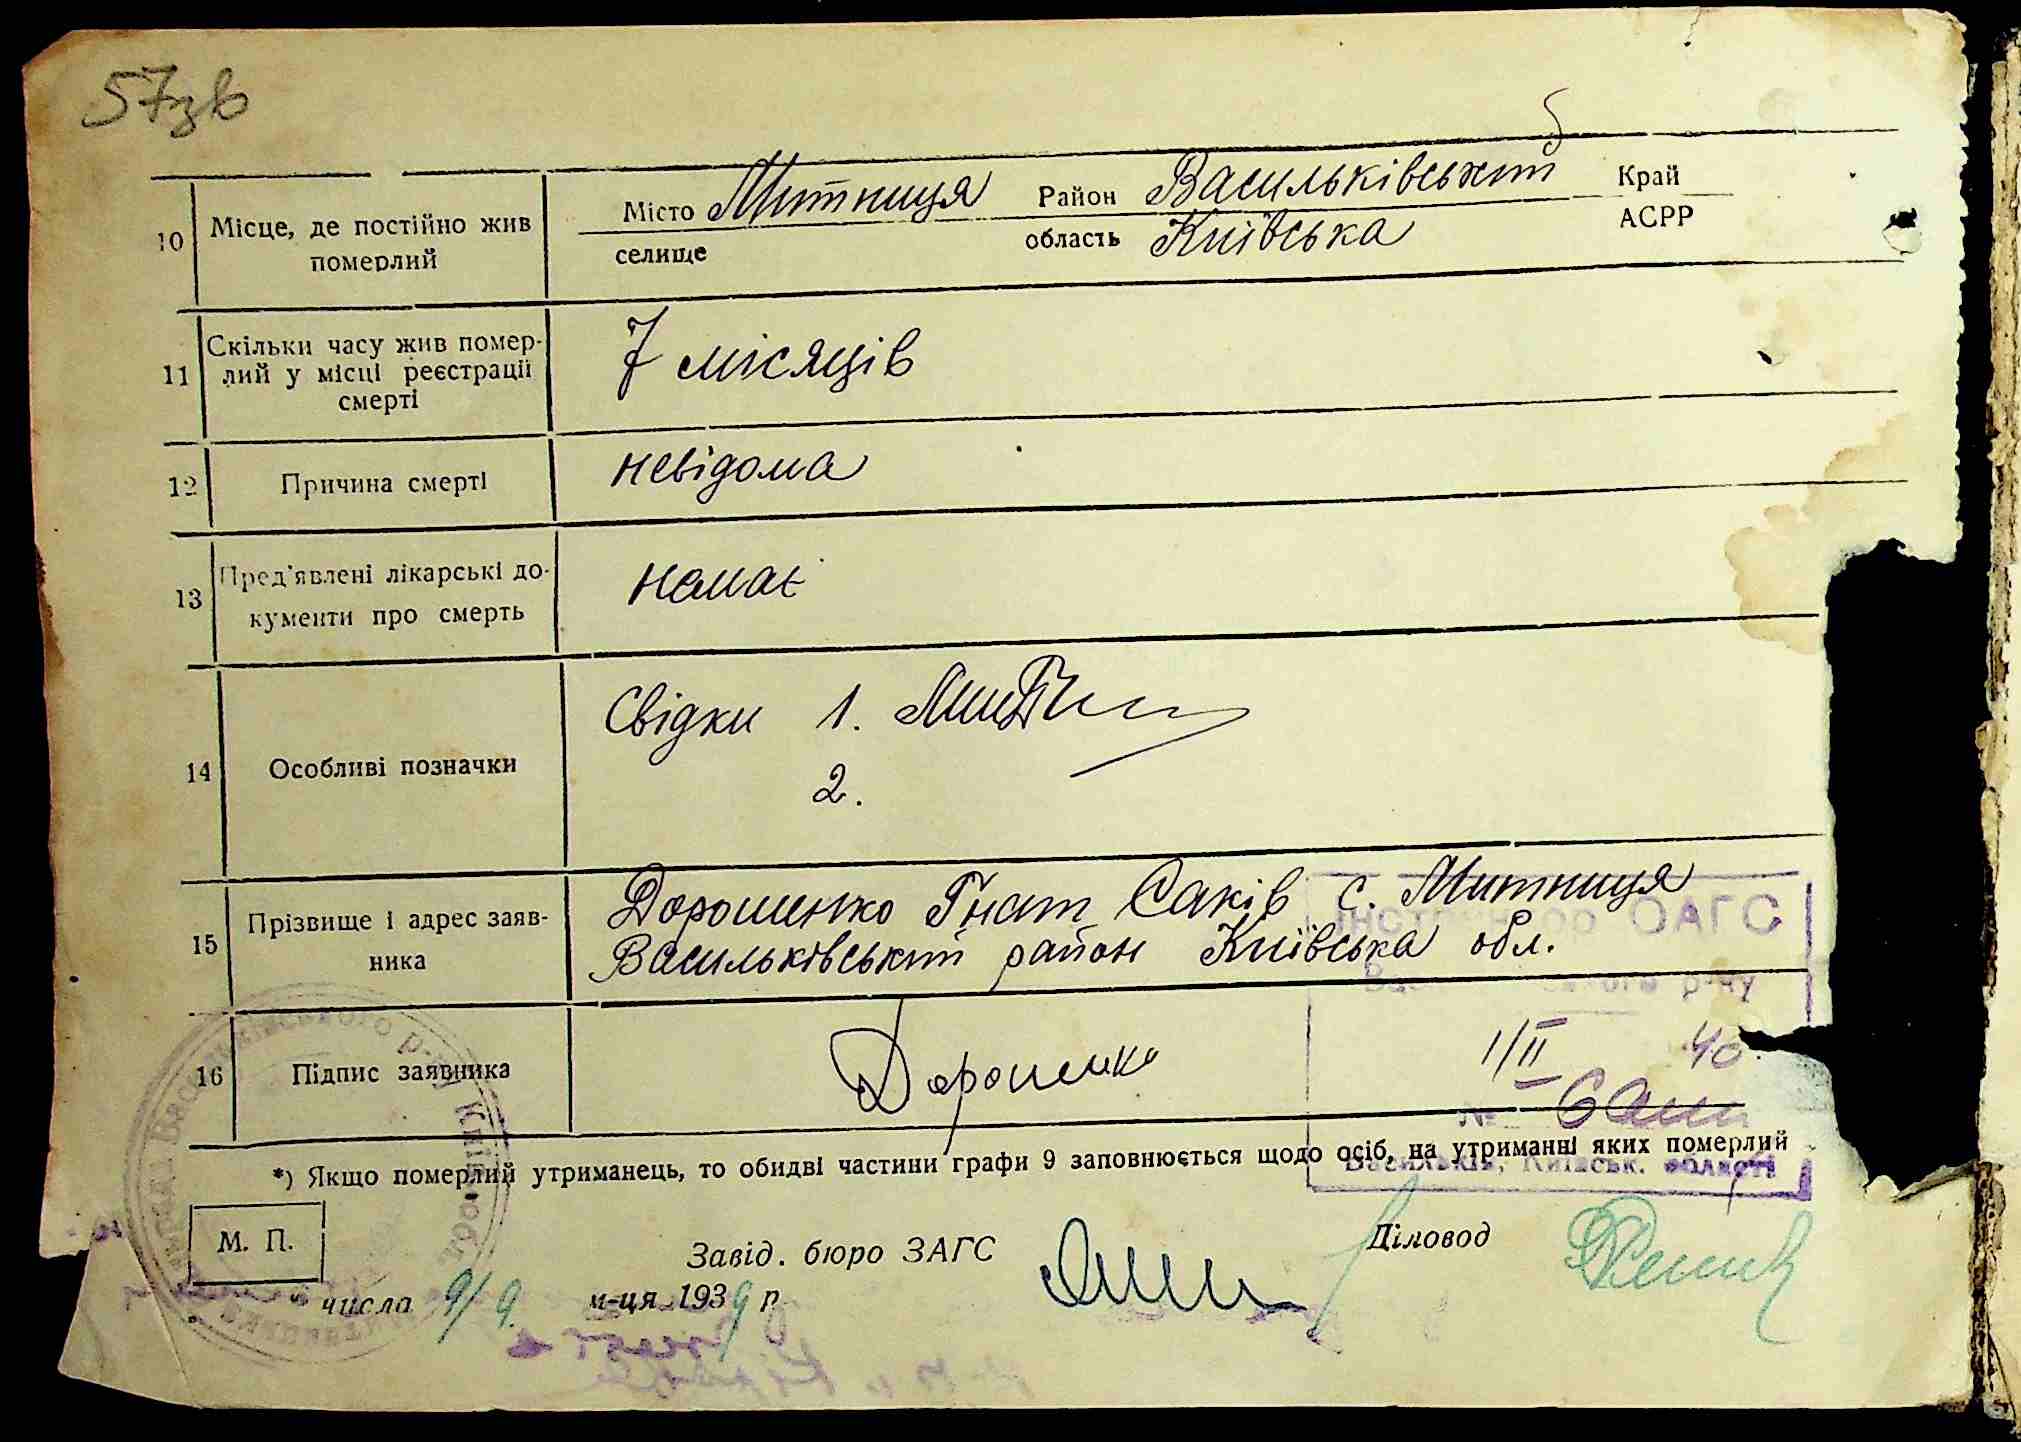 57зв
10 Місце, де постійно жив померлий
Місто Митниця Район Васильківський Край
селище область Київська АСРР
11 Скільки часу жив помер-
лий у місці реєстрації
смерті
7 місяців
12 Причина смерті невідома
13 Пред'явлені лікарські до-
кументи про смерть
немає
14 Особливі позначки
Свідки 1.
2.
15 Прізвище і адрес заяв-
ника
Дорошенко Гнат Саків с. Митниця
Васильківський район Київська обл.
ОАГС
р-ну
16 Підпис заявника Дорошенко
1/II 40
№
*) Якщо померлий утриманець, то обидві частини графи 9 заповнюється щодо осіб, на утриманні яких померлий
Васильків, Київськ. області
М. П.
Завід. бюро ЗАГС Діловод
числа 9/9 м-ця 1939 р